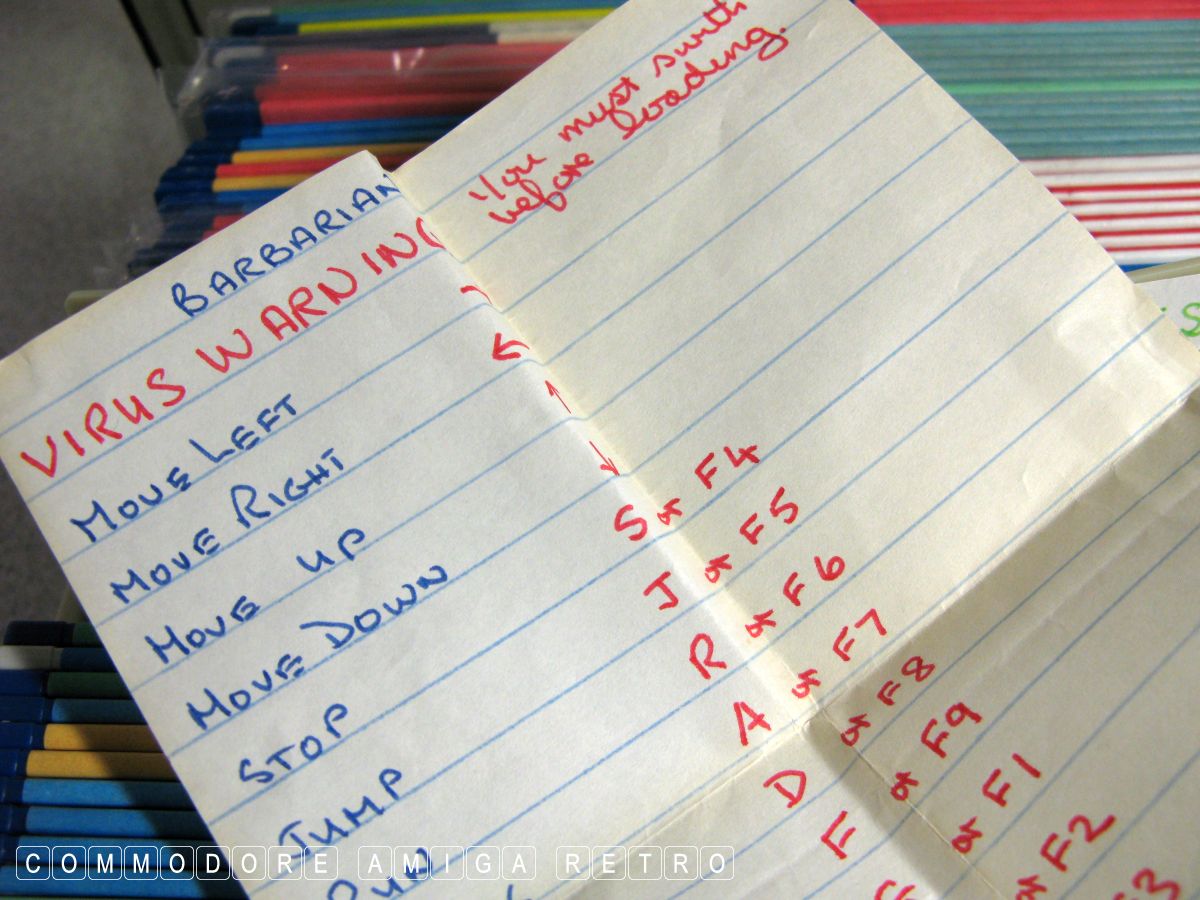 BARBARIAN
VIRUS WARNING You must
before loading.
MOVE LEFT
MOVE RIGHT ←
MOVE UP ↑
MOVE DOWN ↓
STOP S or F4
JUMP J or F5
RUN R or F6
A or F7
D or F8
F or F9
or F1
or F2
F3
COMMODORE AMIGA RETRO